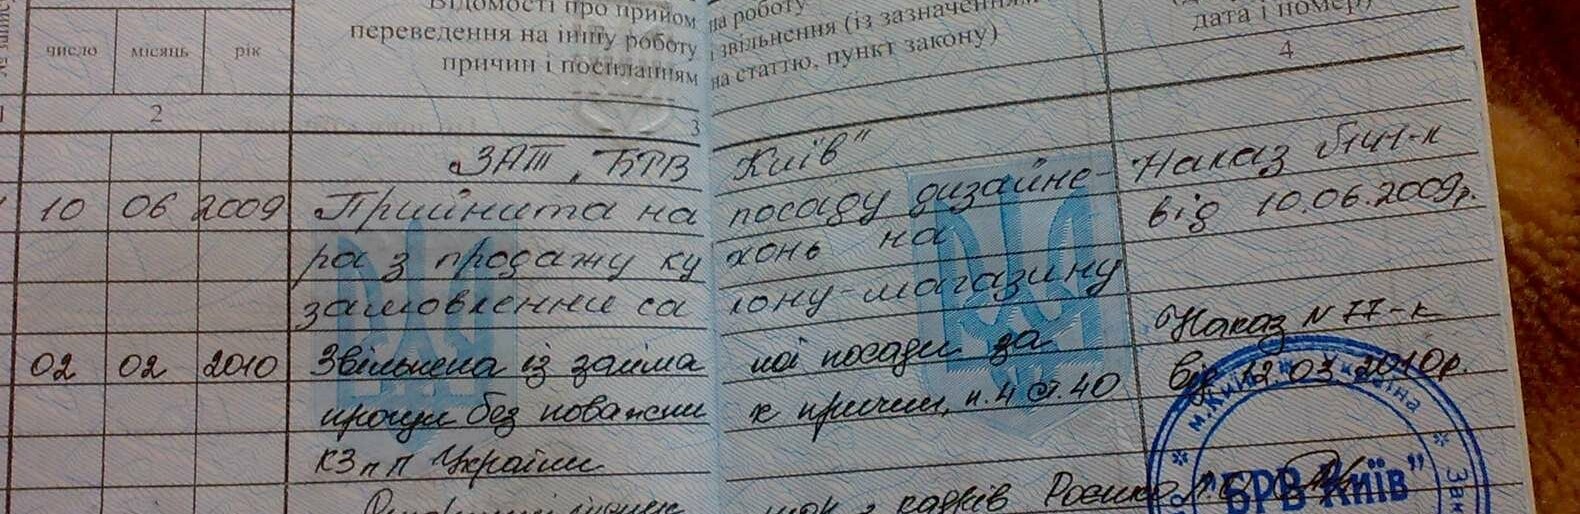 Відомості про прийом на роботу
переведення на іншу роботу і звільнення (із зазначенням
причин і посиланням на статтю, пункт закону)
дата і номер)
число місяць рік
1 2 3 4
ЗАТ „БРВ Київ"
10 06 2009 Прийнята на посаду дизайне- Наказ №141-к
ра з продажу кухонь на від 10.06.2009р.
замовлення салону-магазину
02 02 2010 Звільнена із займаної посади за Наказ №77-к
прогул без поважних причин, п.4 ст.40 від 12.03.2010р.
КЗпП України
кадрів
м.Київ Україна
"БРВ Київ"